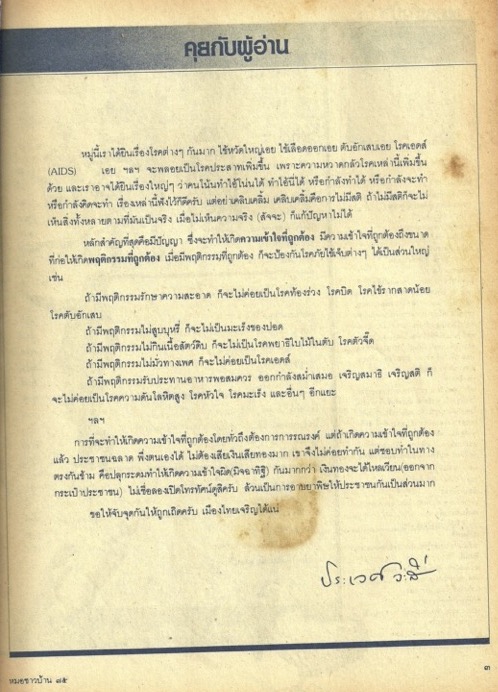 คุยกับผู้อ่าน
หมู่นี้เราได้ยินเรื่องโรคต่างๆ กันมาก ไข้หวัดใหญ่เอย ไข้เลือดออกเอย ตับอักเสบเอย โรคเอดส์
(AIDS) เอย ฯลฯ จะพลอยเป็นโรคประสาทเพิ่มขึ้น เพราะความหวาดกลัวโรคเหล่านี้เพิ่มขึ้น
ด้วย และเราอาจได้ยินเรื่องใหญ่ๆ ว่าคนโน้นทำไอ้โน่นได้ ทำไอ้นี่ได้ หรือกำลังทำได้ หรือกำลังจะทำ
หรือกำลังคิดจะทำ เรื่องเหล่านี้ฟังไว้ก็ดีครับ แต่อย่าเคลิบเคลิ้ม เคลิบเคลิ้มคือการไม่มีสติ ถ้าไม่มีสติก็จะไม่
เห็นสิ่งทั้งหลายตามที่มันเป็นจริง เมื่อไม่เห็นความจริง (สัจจะ) ก็แก้ปัญหาไม่ได้
หลักสำคัญที่สุดคือมีปัญญา ซึ่งจะทำให้เกิดความเข้าใจที่ถูกต้อง มีความเข้าใจที่ถูกต้องถึงขนาด
ที่ก่อให้เกิดพฤติกรรมที่ถูกต้อง เมื่อมีพฤติกรรมที่ถูกต้อง ก็จะป้องกันโรคภัยไข้เจ็บต่างๆ ได้เป็นส่วนใหญ่
เช่น
ถ้ามีพฤติกรรมรักษาความสะอาด ก็จะไม่ค่อยเป็นโรคท้องร่วง โรคบิด โรคไข้รากสาดน้อย
โรคตับอักเสบ
ถ้ามีพฤติกรรมไม่สูบบุหรี่ ก็จะไม่เป็นมะเร็งของปอด
ถ้ามีพฤติกรรมไม่กินเนื้อสัตว์ดิบ ก็จะไม่เป็นโรคพยาธิใบไม้ในตับ โรคตัวจี๊ด
ถ้ามีพฤติกรรมไม่มั่วทางเพศ ก็จะไม่ค่อยเป็นโรคเอดส์
ถ้ามีพฤติกรรมรับประทานอาหารพอสมควร ออกกำลังสม่ำเสมอ เจริญสมาธิ เจริญสติ ก็
จะไม่ค่อยเป็นโรคความดันโลหิตสูง โรคหัวใจ โรคมะเร็ง และอื่นๆ อีกแยะ
ฯลฯ
การที่จะทำให้เกิดความเข้าใจที่ถูกต้องโดยทั่วถึงต้องการการรณรงค์ แต่ถ้าเกิดความเข้าใจที่ถูกต้อง
แล้ว ประชาชนฉลาด พึ่งตนเองได้ ไม่ต้องเสียเงินเสียทองมาก เขาจึงไม่ค่อยทำกัน แต่ชอบทำในทาง
ตรงกันข้าม คือปลุกระดมทำให้เกิดความเข้าใจผิด(มิจฉาทิฐิ) กันมากกว่า เงินทองจะได้ไหลเวียน(ออกจาก
กระเป๋าประชาชน) ไม่เชื่อลองเปิดโทรทัศน์ดูสิครับ ล้วนเป็นการอาบยาพิษให้ประชาชนกันเป็นส่วนมาก
ขอให้จับจุดกันให้ถูกเถิดครับ เมืองไทยเจริญได้แน่
ประเวศ วะสี
๓
หมอชาวบ้าน ๘๕